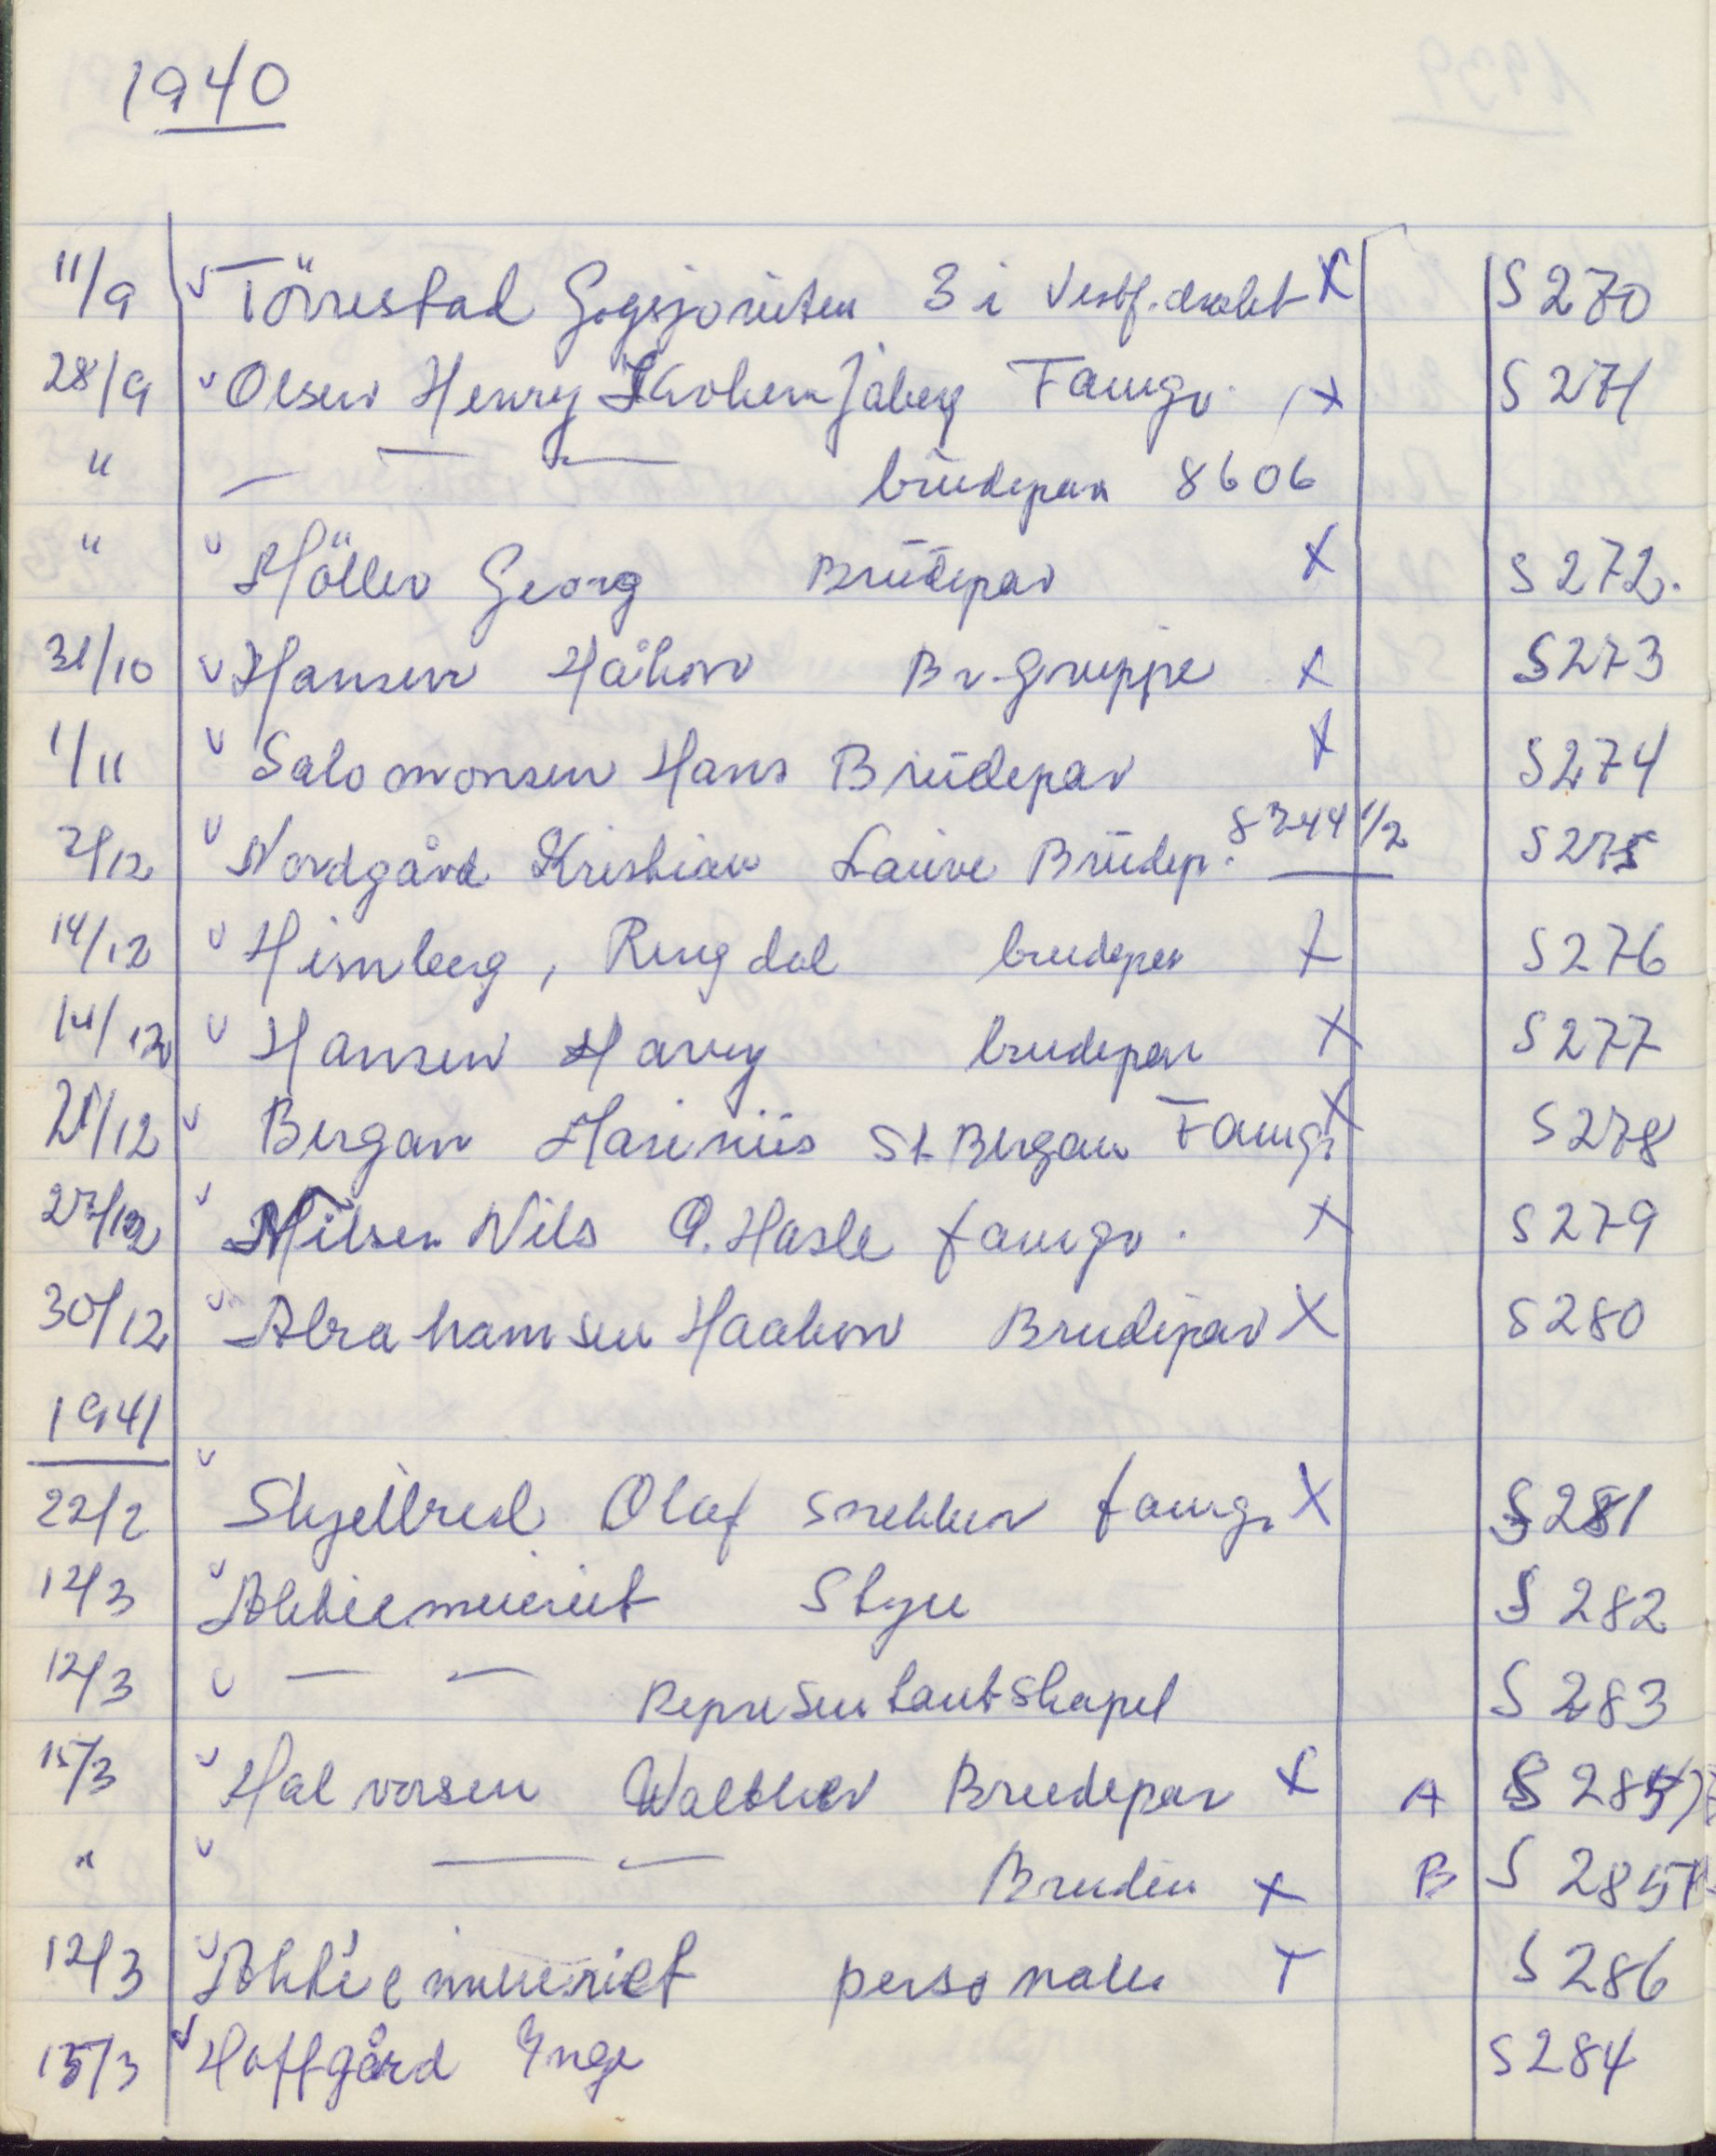 1940
11/9 v Törrestad 3 i X S 270
28/9 v Olsen Henry Famgr. X S 271
" — — — brüdepar 8606
" v Möller Georg Brüdepar X S 272.
31/10 v Hansen Håkon Br. Gruppe X S 273
1/11 v Salomonsen Hans Brüdepar X S 274
2/12 v Nordgård Kristian Brüdep. S 275
14/12 v Himberg, Ringdal brudepar X S 276
14/12 v Hansen Harry brudepar X S 277
21/12 v Bergan Marinüs St Bergan Famgr X S 278
27/12 v Nilsen Nils Q. Hasle famgr. X S 279
30/12 v Abrahamsen Haakon Brudepar X S 280
1941
22/2 v Skjellrud Olaf snekker famgr. X S 281
12/3 v Aktiemeieriet Styre S 282
12/3 v — — Representantskapet S 283
15/3 v Halvorsen Walther Brudepar X A S 285
" v — — Bruden X B S 285
12/3 v Aktiemeieriet personale S 286
15/3 v Hoffgård Inge S 284